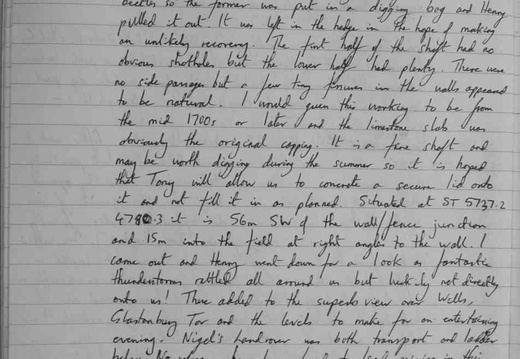 beetles so the former was put in a digging bag and Henry
pulled it out. It was left in the hedge in the hope of making
an unlikely recovery. The first half of the shaft had no
obvious shotholes but the lower half had plenty. There were
no side passages but a few tiny fissures in the walls appeared
to be natural. I would guess this working to be from
the mid 1700s or later and the limestone slab was
obviously the original capping. It is a fine shaft and
may be worth digging during the summer so it is hoped
that Tony will allow us to concrete a secure lid onto
it and not fill it in as planned. Situated at ST 5737.2
4780.3 it is 56m SW of the wall/fence junction
and 15m into the field at right angles to the wall. I
came out and Henry went down for a look as fantastic
thunderstorms rattled all around us but luckily not directly
onto us! These added to the superb view over Wells,
Glastonbury Tor and the levels to make for an entertaining
evening. Nigel's landrover was both transport and ladder